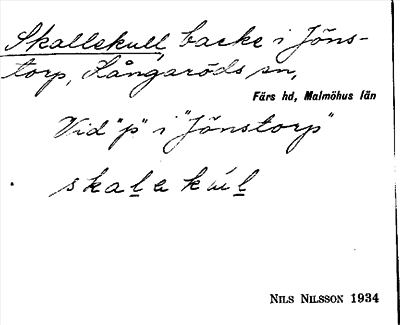 Skallekull, backe i Jöns-
torp, Långaröds sn,
Färs hd, Malmöhus län
Vid "p" i "Jönstorp"
skalekul
NILS NILSSON 1934